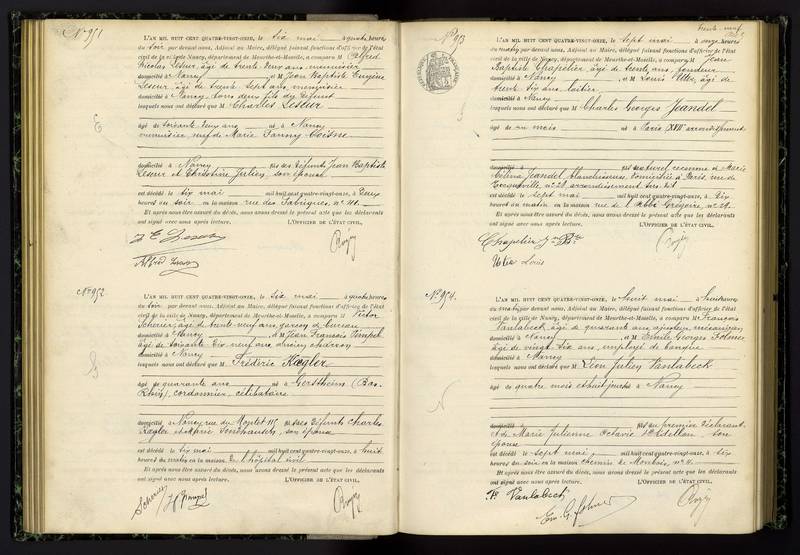 N° 951
L'AN MIL HUIT CENT QUATRE-VINGT-ONZE, le six mai à quatre heures
du soir par devant nous, Adjoint au Maire, délégué faisant fonctions d'officier de l'état
civil de la ville de Nancy, département de Meurthe-et-Moselle, a comparu M Alfred
Nicolas Leseur, âgé de trente deux ans, menuisier
domicilié à Nancy et M Jean Baptiste Eugène
Leseur âgé de trente sept ans, menuisier
domicilié à Nancy tous deux fils du défunt
lesquels nous ont déclaré que M Charles Leseur
âgé de soixante deux ans né à Nancy
menuisier, veuf de Marie Fanny
domicilié à Nancy fils des défunts Jean Baptiste
Leseur et Christine Julien, son épouse
est décédé le six mai mil huit cent quatre-vingt-onze, à deux
heures du soir en la maison rue des Fabriques, n° 111.
Et après nous être assuré du décès, nous avons dressé le présent acte que les déclarants
ont signé avec nous après lecture. L'OFFICIER DE L'ÉTAT CIVIL.
N° 952
L'AN MIL HUIT CENT QUATRE-VINGT-ONZE, le six mai à quatre heures
du soir par devant nous, Adjoint au Maire, délégué faisant fonctions d'officier de l'état
civil de la ville de Nancy, département de Meurthe-et-Moselle, a comparu M Victor
Scherier, âgé de trente neuf ans, garçon de bureau
domicilié à Nancy et M Jean François Pimpel
âgé de soixante dix neuf ans, ancien charron
domicilié à Nancy
lesquels nous ont déclaré que M Frédéric Kægler
âgé de quarante ans né à Gerstheim (Bas-
Rhin), cordonnier, célibataire
domicilié à Nancy, rue du Montet 115 fils des défunts Charles
Kægler et son épouse
est décédé le six mai mil huit cent quatre-vingt-onze, à huit
heures du matin en la maison de l'hôpital civil
Et après nous être assuré du décès, nous avons dressé le présent acte que les déclarants
ont signé avec nous après lecture. L'OFFICIER DE L'ÉTAT CIVIL.
Scherier
N° 953
L'AN MIL HUIT CENT QUATRE-VINGT-ONZE, le sept mai à onze heures
du matin par devant nous, Adjoint au Maire, délégué faisant fonctions d'officier de l'état
civil de la ville de Nancy, département de Meurthe-et-Moselle, a comparu M Jean
Baptiste Chapelier, âgé de trente ans, fondeur
domicilié à Nancy et M Louis Utter, âgé de
trente six ans, laitier
domicilié à Nancy
lesquels nous ont déclaré que M Charles Georges Jeandel
âgé de un mois né à Paris XVII arrondissement
domicilié à fils naturel reconnu de Marie
Célina Jeandel, blanchisseuse, domiciliée à Paris, rue de
Tocqueville, n° 28, arrondissement sus dit
est décédé le sept mai mil huit cent quatre-vingt-onze, à dix
heures du matin en la maison rue de l'abbé Grégoire, n° 28.
Et après nous être assuré du décès, nous avons dressé le présent acte que les déclarants
ont signé avec nous après lecture. L'OFFICIER DE L'ÉTAT CIVIL.
Chapelier Jn Bte
Utter Louis
N° 954.
L'AN MIL HUIT CENT QUATRE-VINGT-ONZE, le huit mai à huit heures
du matin par devant nous, Adjoint au Maire, délégué faisant fonctions d'officier de l'état
civil de la ville de Nancy, département de Meurthe-et-Moselle, a comparu M François
Vantabeck, âgé de quarante ans, ajusteur mécanicien
domicilié à Nancy et M Emile Georges Folmer
âgé de vingt six ans, employé de banque
domicilié à Nancy
lesquels nous ont déclaré que M Léon Julien Vantabeck
âgé de quatre mois et huit jours né à Nancy
domicilié à fils du premier déclarant
et de Marie Julienne Octavie son
épouse
est décédé le sept mai mil huit cent quatre-vingt-onze, à six
heures du soir en la maison chemin de
Et après nous être assuré du décès, nous avons dressé le présent acte que les déclarants
ont signé avec nous après lecture. L'OFFICIER DE L'ÉTAT CIVIL.
Vantabeck